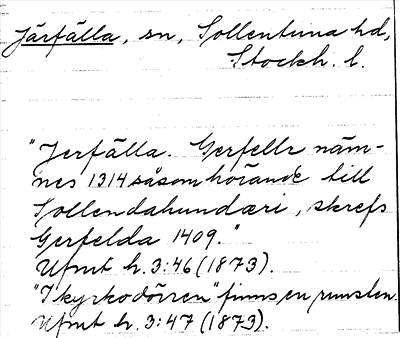 Järfälla, sn, Sollentuna hd,
Stockh. l.
"Jerfälla. Gerfellr näm-
nes 1314 såsom hörande till
Sollendahundæri, skrefs
Gerfelda 1409."
Ufmt h. 3:46 (1873).
"I kyrkodörren" finns en runsten.
Ufmt h. 3:47 (1873).